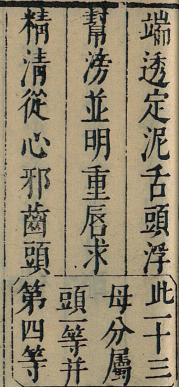 端透定泥舌頭浮
幫滂並明重唇求
精清從心邪齒頭
此一十三
母分屬
頭一等并
第四等